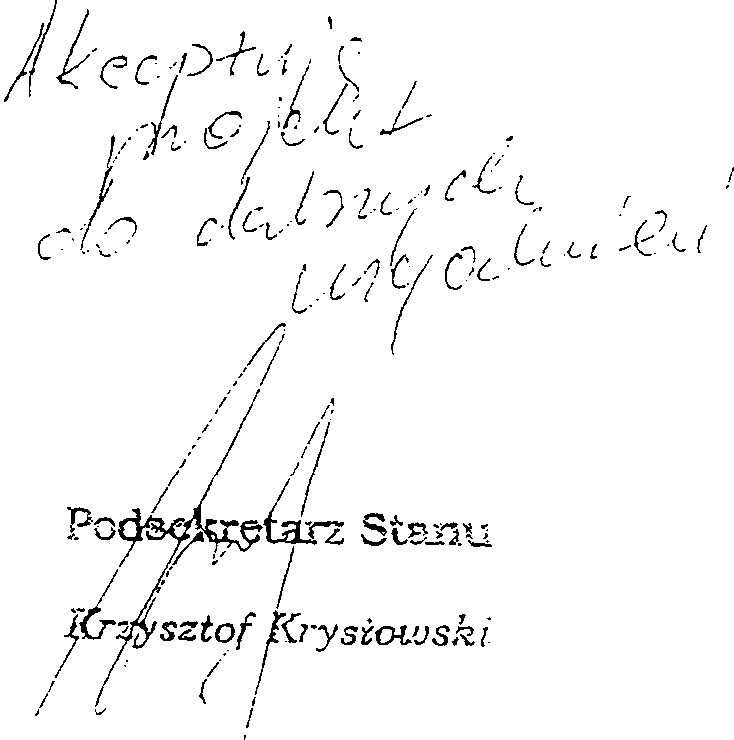 Akceptuję
projekt
do dalszych
uzgodnień
Podsekretarz Stanu
Krzysztof Krystowski